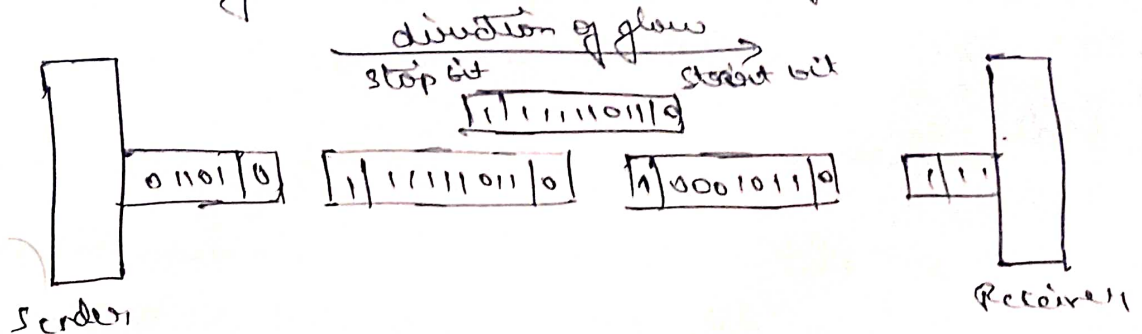 direction of glow
stop bit start bit
1 11111011 0
01101 0 1 11111011 0 1 0001011 0 1 11
Sender Receiver